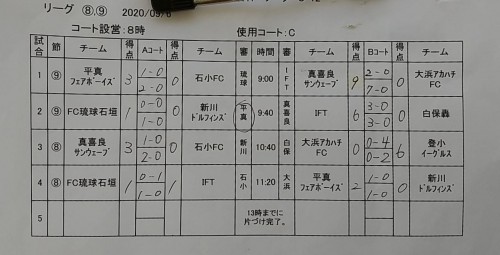 リーグ ⑧,⑨ 2020/09/6
コート設営:8時 使用コート:C
試合 節 チーム 得点 Aコート 得点 チーム 審 時間 審 チーム 得点 Bコート 得点 チーム
1 ⑨ 平真フェアボーイズ 3 1-0 2-0 0 石小FC 琉球 9:00 IFT 真喜良サンウェーブ 9 2-0 7-0 0 大浜アカハチFC
2 ⑨ FC琉球石垣 1 0-0 1-0 0 新川ドルフィンズ 平真 9:40 真喜良 IFT 6 3-0 3-0 0 白保轟
3 ⑧ 真喜良サンウェーブ 3 1-0 2-0 0 石小FC 新川 10:40 白保 大浜アカハチFC 0 0-4 0-2 6 登小イーグルス
4 ⑧ FC琉球石垣 1 0-1 1-0 1 IFT 石小 11:20 大浜 平真フェアボーイズ 2 1-0 1-0 0 新川ドルフィンズ
5 13時までに片づけ完了。